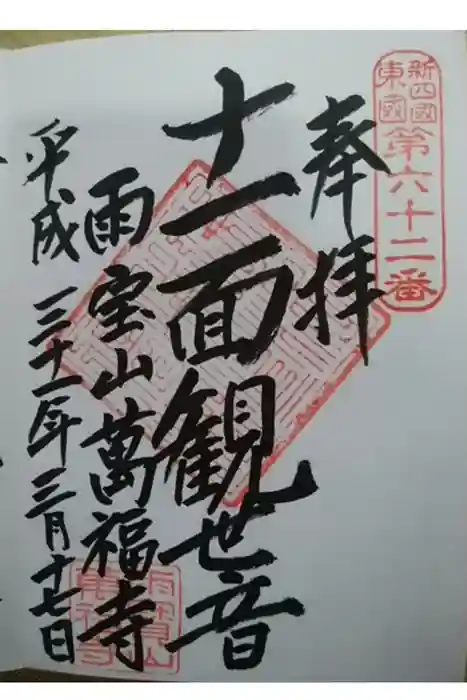 新四國
東國
第六十二番
奉拝
十一面観世音
雨宝山萬福寺
平成三十一年三月十七日